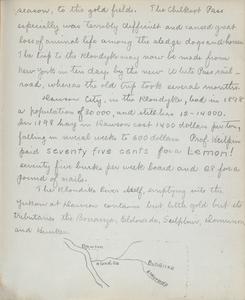 season, to the gold fields. The Chilkoot Pass
especially was terribly difficult and caused great
loss of animal life among the sledge dogs and horses.
The trip to the Klondyke may now be made from
New York in ten days by the new White Pass rail-
road, whereas the old trip took several months.
Dawson City, in the Klondyke, had in 1898
a population of 30,000, and still has 12-14000.
In 1898 hay in Dawson cost 1400 dollars per ton,
falling in several weeks to 600 dollars. Prof. Heilprin
paid seventy five cents for a Lemon!
seventy five bucks per week board and $8 for a
pound of nails.
The Klondike River itself, emptying into the
Yukon at Dawson contains but little gold but its
tributaries the Bonanza, Eldorado, Sulphur, Dominion
and Hunker.
Dawson
Klondike
Bonanza
Eldorado